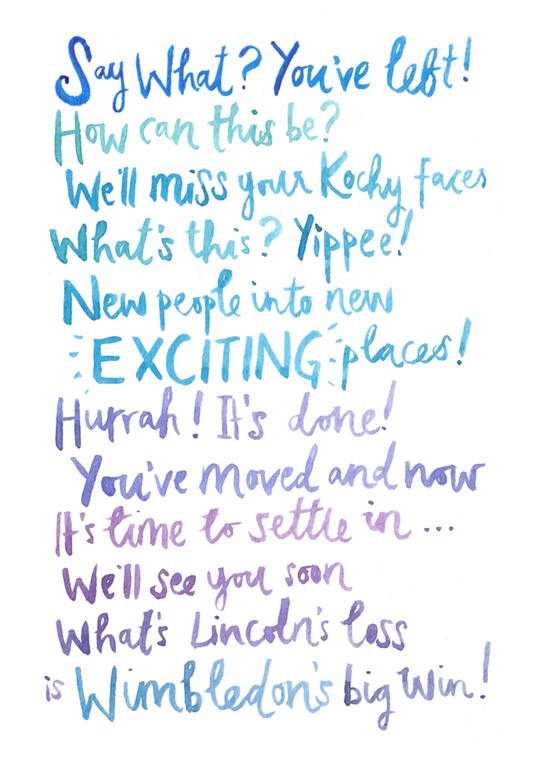 Say What? You've left!
How can this be?
We'll miss your Kochy faces
What's this? Yippee!
New people into new
EXCITING places!
Hurrah! It's done!
You've moved and now
It's time to settle in ...
We'll see you soon
What's Lincoln's loss
is Wimbledon's big win!